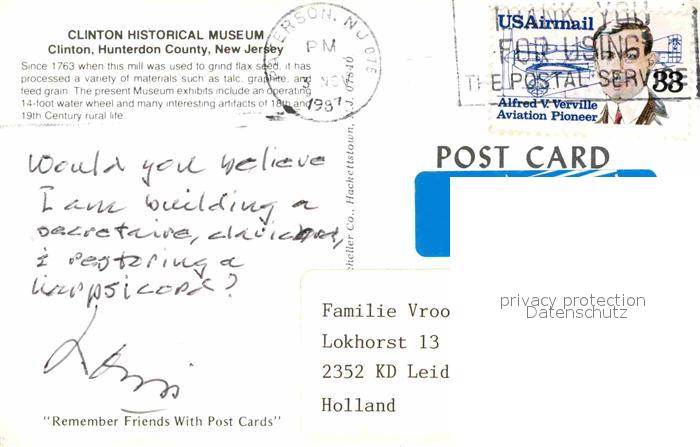 CLINTON HISTORICAL MUSEUM
Clinton, Hunterdon County, New Jersey
Since 1763 when this mill was used to grind flax seed, it has
processed a variety of materials such as talc, graphite, and
feed grain. The present Museum exhibits include an operating
14-foot water wheel and many interesting artifacts of 18th and
19th Century rural life
PATERSON, NJ 075
PM
3 NOV
1987
THANK YOU
FOR USING
THE POSTAL SERVICE
USAirmail
33
Alfred V. Verville
Aviation Pioneer
POST CARD
Would you believe
I am building a
secretaire, clavichord,
& restoring a
harpsicord?
"Remember Friends With Post Cards"
heller Co., Hackettstown, N.J. 07840
Familie Vroo
Lokhorst 13
2352 KD Leid
Holland
privacy protection
Datenschutz